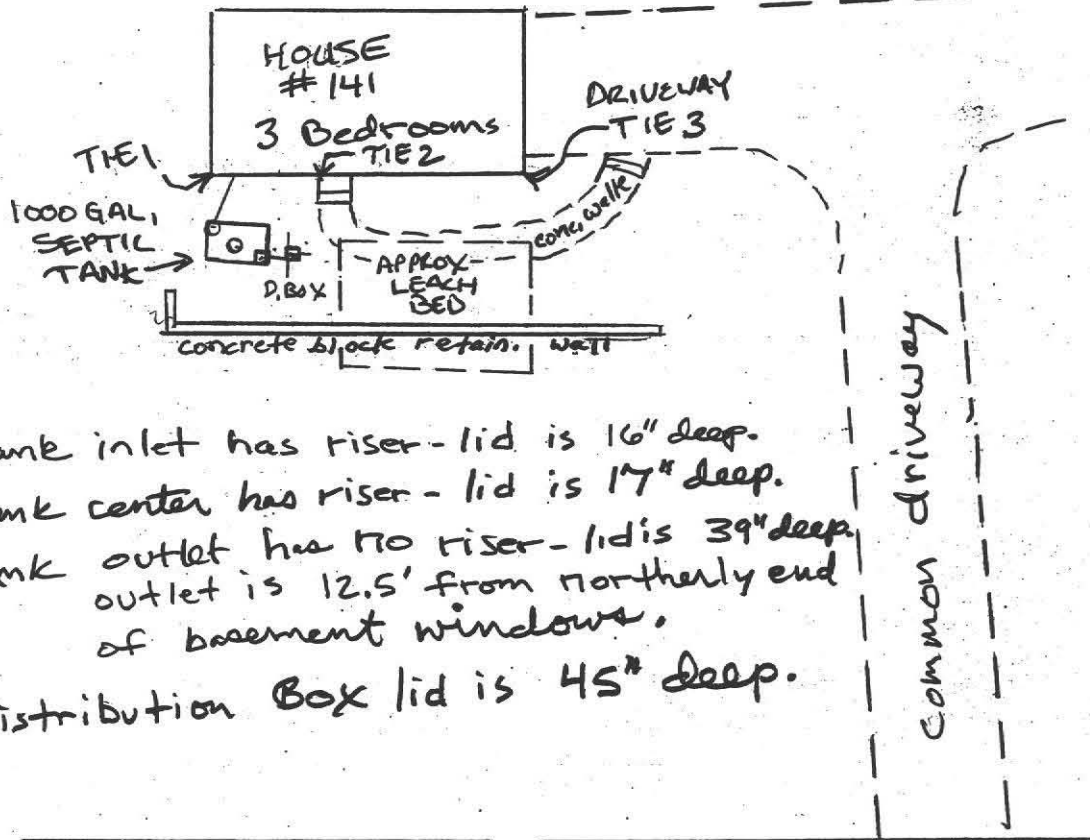 HOUSE
# 141
3 Bedrooms
TIE 2
DRIVEWAY
TIE 3
TIE 1
1000 GAL.
SEPTIC
TANK
D.BOX
APPROX
LEACH
BED
conc. walk
concrete block retain. wall
ank inlet has riser - lid is 16" deep.
ank center has riser - lid is 17" deep.
ank outlet has no riser - lid is 39" deep.
outlet is 12.5' from northerly end
of basement windows.
istribution Box lid is 45" deep.
Common driveway